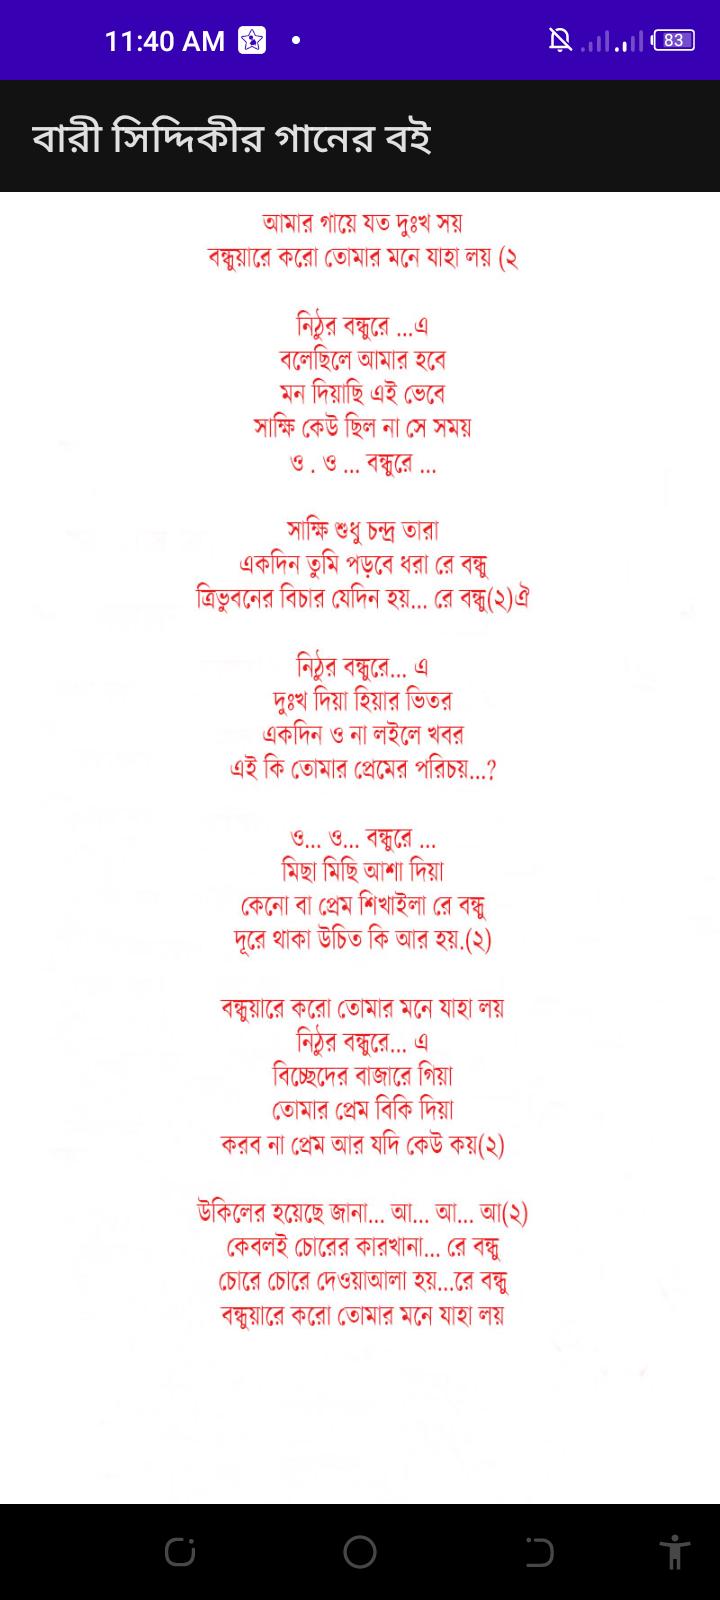 11:40 AM
83
বারী সিদ্দিকীর গানের বই
আমার গায়ে যত দুঃখ সয়
বন্ধুয়ারে করো তোমার মনে যাহা লয় (২
নিঠুর বন্ধুরে ...এ
বলেছিলে আমার হবে
মন দিয়াছি এই ভেবে
সাক্ষি কেউ ছিল না সে সময়
ও . ও ... বন্ধুরে ...
সাক্ষি শুধু চন্দ্র তারা
একদিন তুমি পড়বে ধরা রে বন্ধু
ত্রিভুবনের বিচার যেদিন হয়... রে বন্ধু(২)ঐ
নিঠুর বন্ধুরে... এ
দুঃখ দিয়া হিয়ার ভিতর
একদিন ও না লইলে খবর
এই কি তোমার প্রেমের পরিচয়...?
ও... ও... বন্ধুরে ...
মিছা মিছি আশা দিয়া
কেনো বা প্রেম শিখাইলা রে বন্ধু
দূরে থাকা উচিত কি আর হয়.(২)
বন্ধুয়ারে করো তোমার মনে যাহা লয়
নিঠুর বন্ধুরে... এ
বিচ্ছেদের বাজারে গিয়া
তোমার প্রেম বিকি দিয়া
করব না প্রেম আর যদি কেউ কয়(২)
উকিলের হয়েছে জানা... আ... আ... আ(২)
কেবলই চোরের কারখানা... রে বন্ধু
চোরে চোরে দেওয়াআলা হয়...রে বন্ধু
বন্ধুয়ারে করো তোমার মনে যাহা লয়